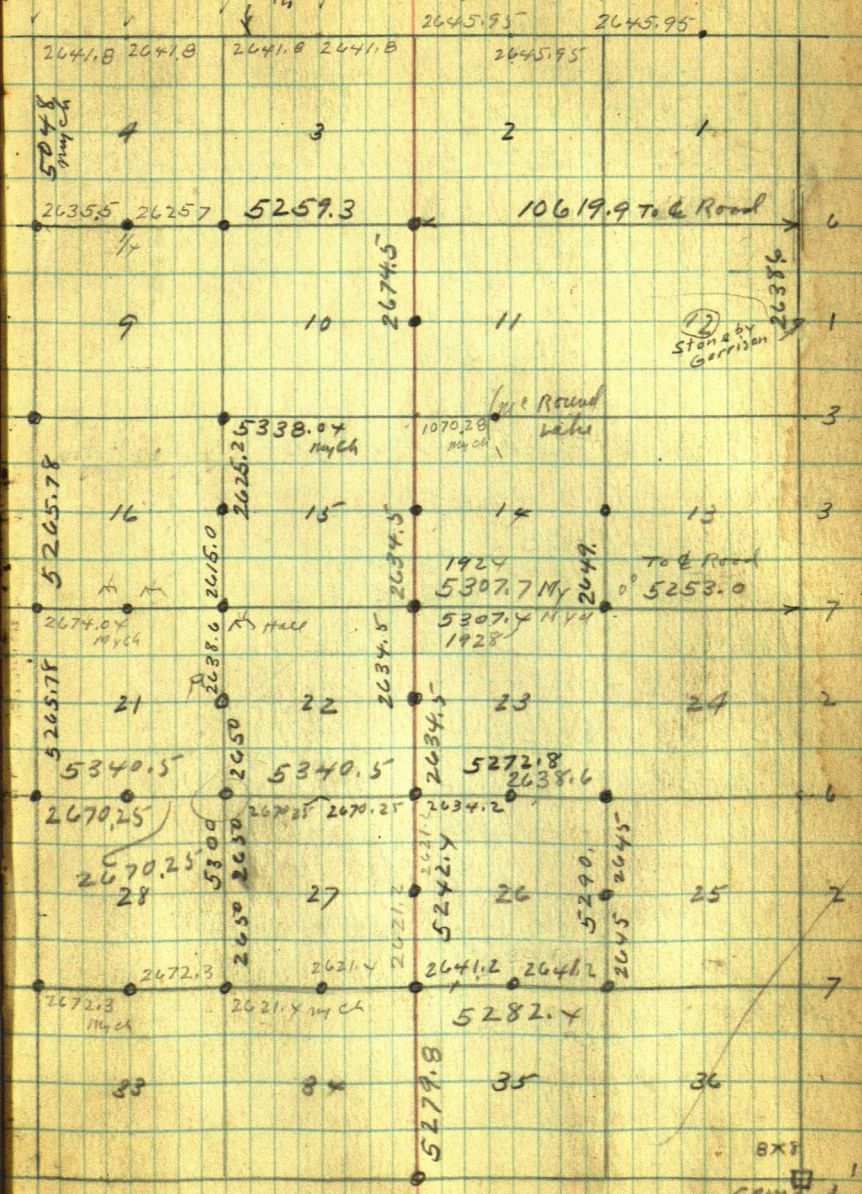 2645.95 2645.95
2641.8 2641.8 2641.8 2641.8 2645.95
5048
my ch
4 3 2 1
2635.5 2625 7 5259.3 10619.9 To ℄ Road 6
1/4
2674.5
2638 6
9 10 11 12 1
Stone by
Garrison
Round
Lake
5338.04
my ch
1070.28
my ch
3
2625.2
5265.78
16 15 14 13 3
2615.0
2634.5
1924
5307.7 My
2649.
To ℄ Road
5253.0
2674.04
My ch
Hall
5307.4
1928
7
2638.6
2634.5
5265.78
21 22 23 24 2
2650
2634.5
5340.5 5340.5 5272.8
2638.6
2670.25 2670.25 2670.25 2634.2
6
2670.25
5300
2650
2621.2
5242.4
5290.
2645
28 27 26 25 2
2650
2621.2
2645
2672.3 2621.4 2641.2 2641.2
7
2672.3
my ch
2621.4 my ch
5282.4
33 34 35 36
5279.8
8X8
1